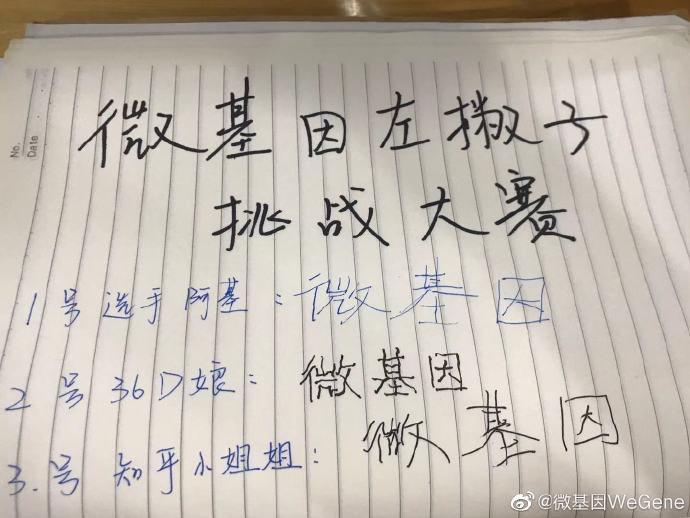 No.
Date
微基因左撇子
挑战大赛
1号选手阿基：微基因
2号36D娘：微基因
3.号知乎小姐姐：微基因
@微基因WeGene